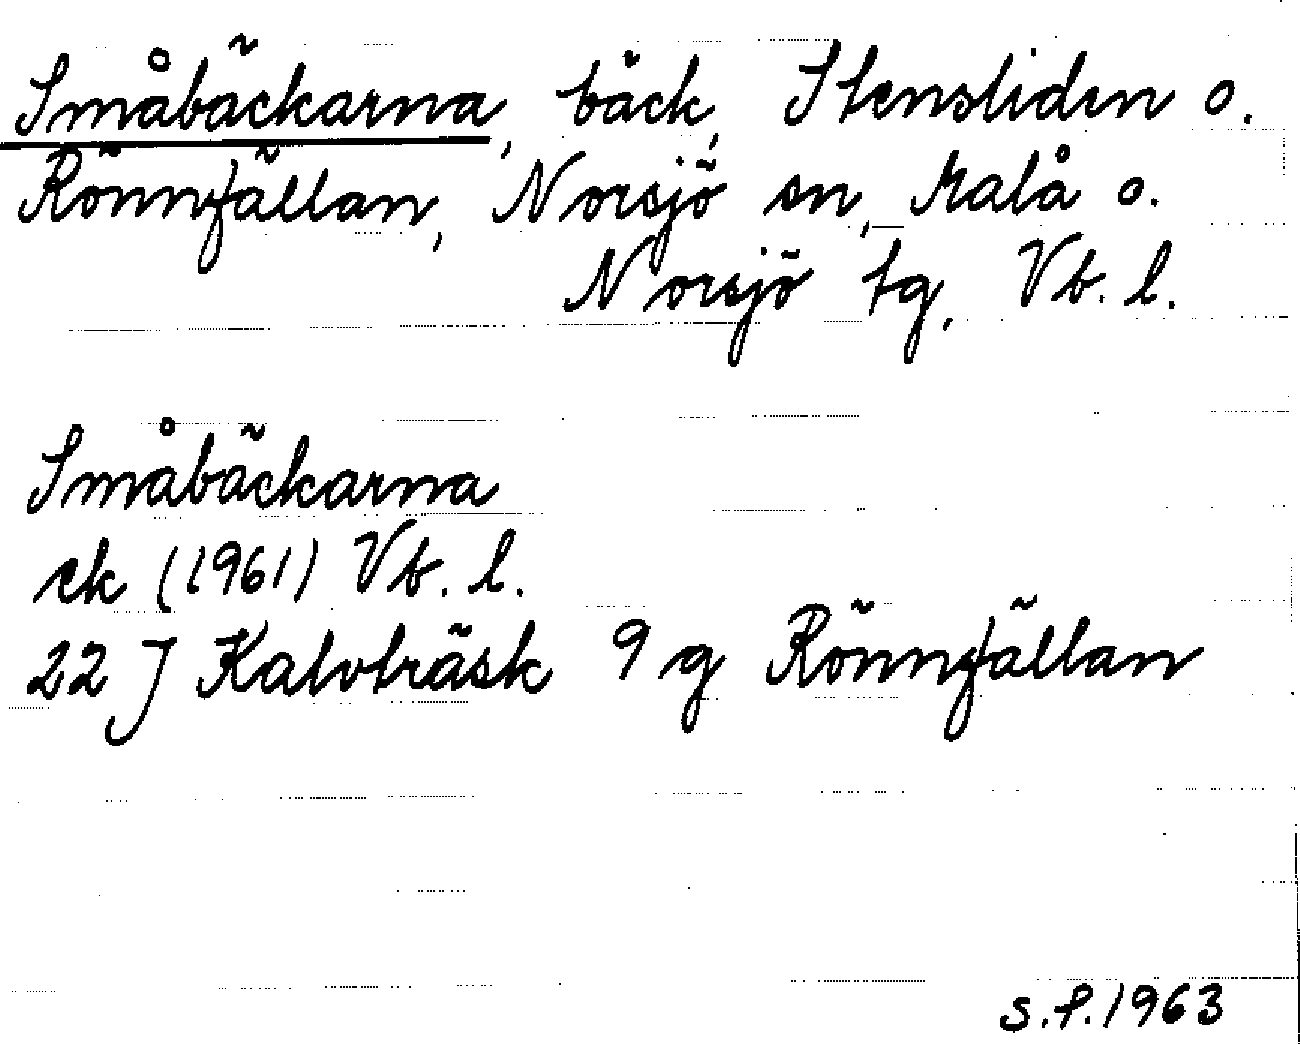 Småbäckarna, bäck, Stensliden o.
Rönnfällan, Norsjö sn, Malå o.
Norsjö tg, Vb. l.
Småbäckarna
ek (1961) Vb. l.
22 J Kalvträsk 9 g Rönnfällan
S.P. 1963